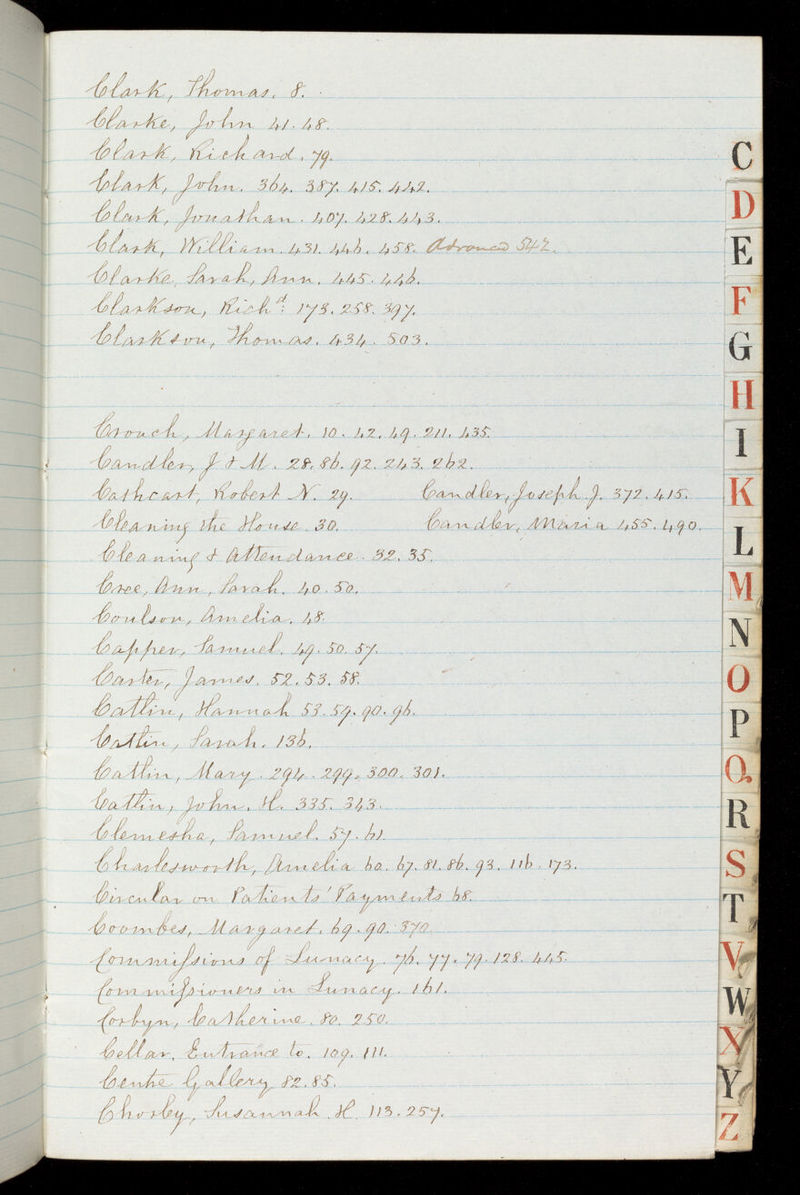 Clark, Thomas. 8.
Clarke, John 41. 48.
Clark, Richard. 79.
Clark, John. 364. 387. 415. 442.
Clark, Jonathan. 407. 428. 443.
Clark, William. 431. 446. 458. 542.
Clarke, Sarah, Ann. 445. 446.
Clarkson, Richd: 173. 258. 397.
Clarkson, Thomas. 434. 503.
Crouch, Margaret. 10. 42. 49. 211. 435.
Candler, J & M. 28. 86. 92. 243. 262.
Cathcart, Robert N. 29. Candler, Joseph J. 372. 415.
Cleaning the House. 30. Candler, Maria 455. 490.
Cleaning & Attendance. 32. 35.
Cree, Ann, Sarah. 40. 50.
Coulson, Amelia. 48.
Capper, Samuel. 49. 50. 57.
Carter, James. 52. 53. 58.
Catlin, Hannah 53. 59. 90. 96.
Catlin, Sarah. 136.
Catlin, Mary. 294. 299. 300. 301.
Catlin, John. H. 335. 343.
Clemesha, Samuel. 57. 61.
Charlesworth, Amelia 60. 67. 81. 86. 93. 116. 173.
Circular on Patients' Payments 68.
Coombes, Margaret. 69. 90. 370
Commissions of Lunacy. 76. 77. 79. 128. 445.
Commissioners in Lunacy. 161.
Corbyn, Catherine. 80. 250.
Cellar, Entrance to. 109. 111.
Centre Gallery 82. 85.
Chorley, Susannah. H. 113. 257.
C
D
E
F
G
H
I
K
L
M
N
O
P
Q
R
S
T
V
W
X
Y
Z